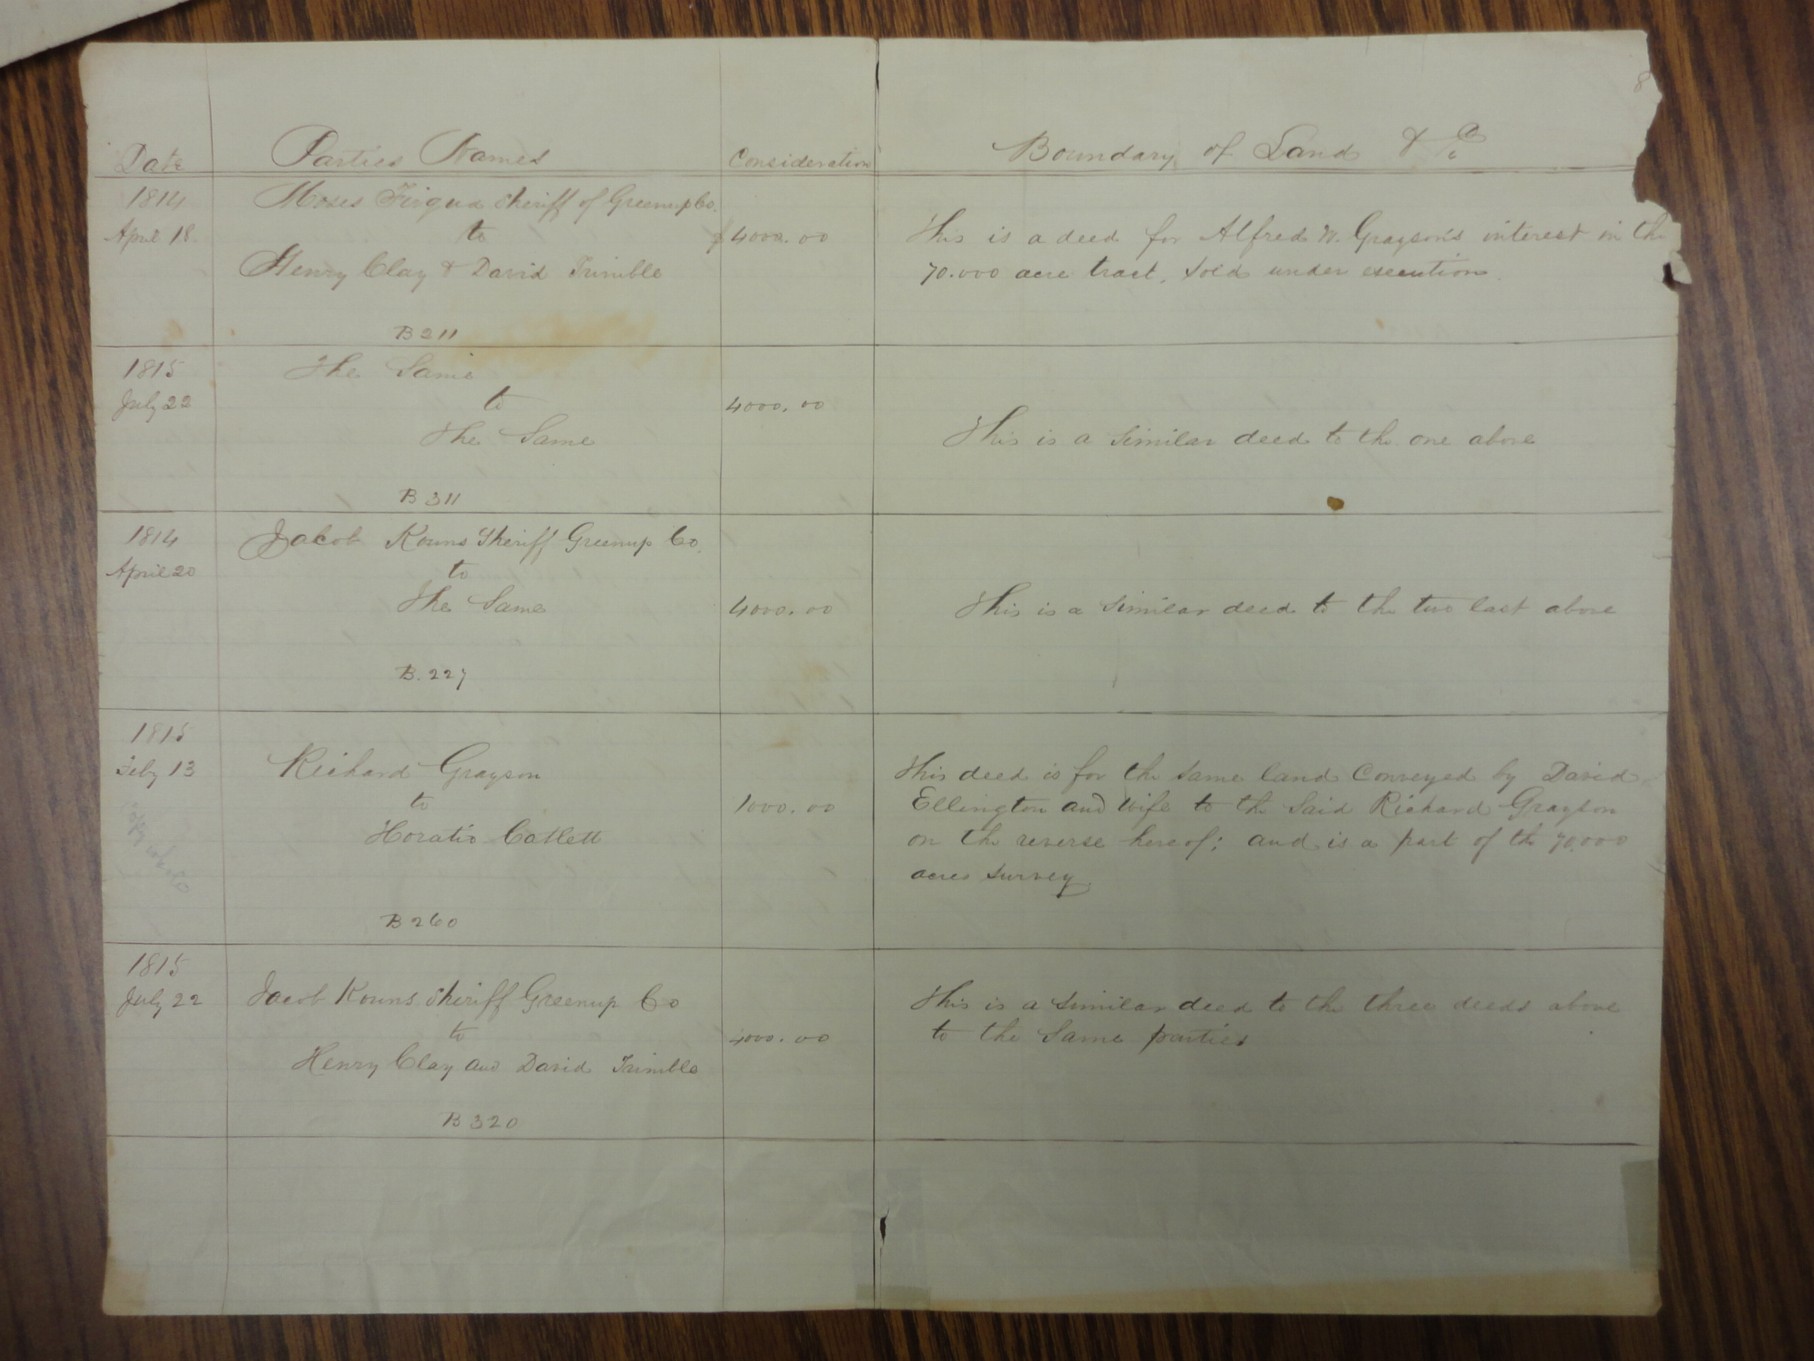 8
Date Parties Names Consideration Boundary of Land & c
1814
April 18.
Moses Firqua Sheriff of Greenup Co.
to
Henry Clay & David Trimble
B 211
$4000.00
This is a deed for Alfred W. Grayson's interest in the
70.000 acre tract, Sold under execution.
1815
July 22
The Same
to
The Same
B 311
4000.00
This is a Similar deed to the one above
1814
April 20
Jacob Kouns Sheriff Greenup Co.
to
The Same
B. 227
4000.00
This is a Similar deed to the two last above
1815
Feby 13
Richard Grayson
to
Horatio Catlett
B 260
1000.00
This deed is for the Same land Conveyed by David
Ellington and Wife to the Said Richard Grayson
on the reverse hereof; and is a part of the 70.000
acres Survey
1815
July 22
Jacob Kouns Sheriff Greenup Co
to
Henry Clay and David Trimble
B 320
4000.00
This is a Similar deed to the three deeds above
to the Same parties